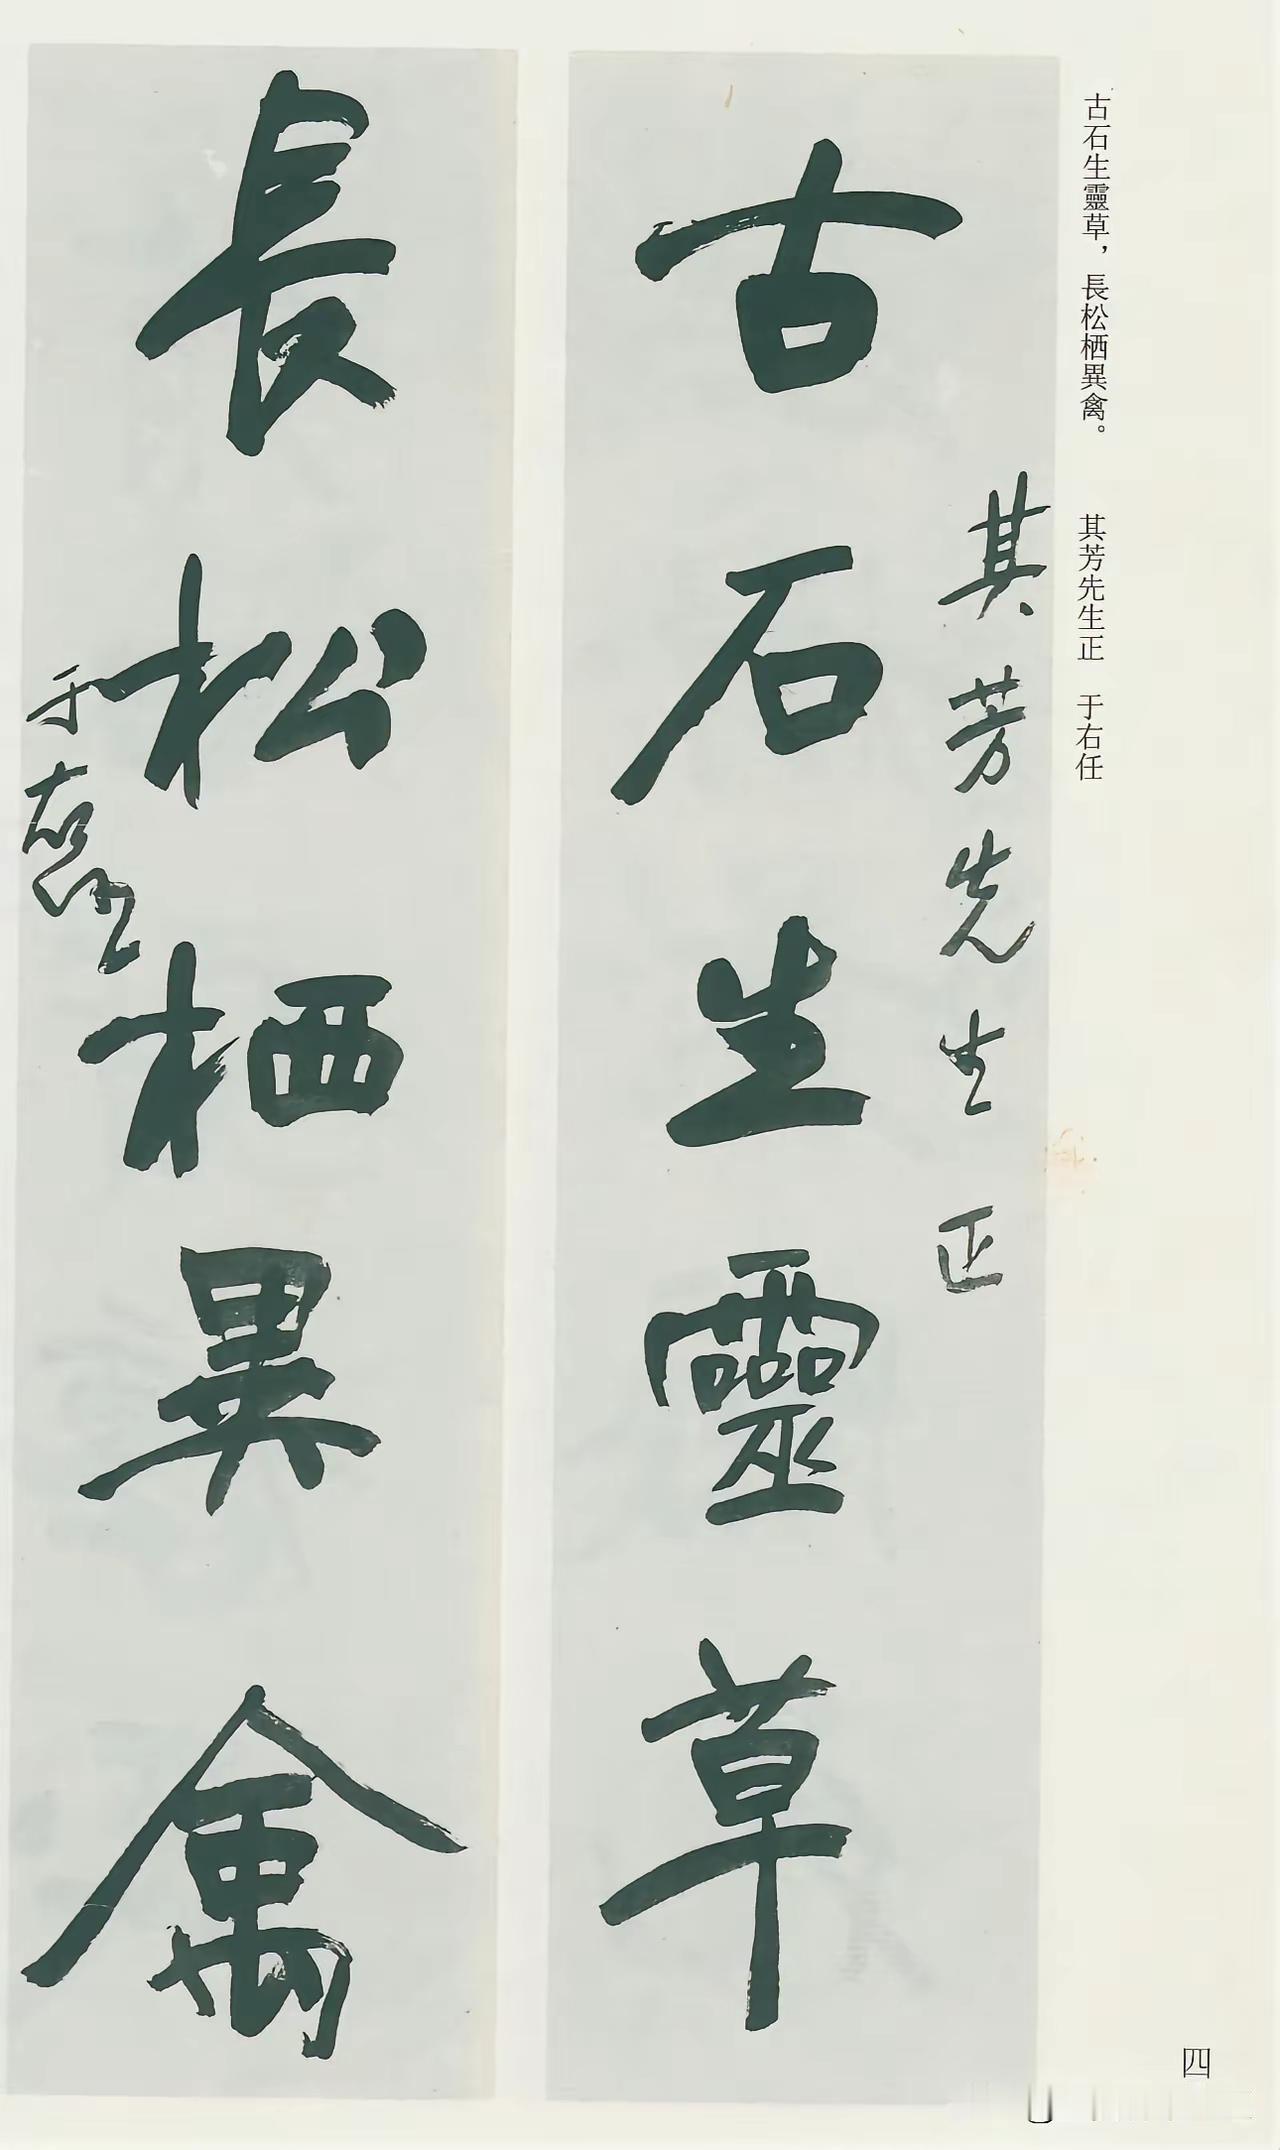 古石生靈草，長松栖異禽。 其芳先生正 于右任
其芳先生正
古石生靈草
長松栖異禽
于右任
四